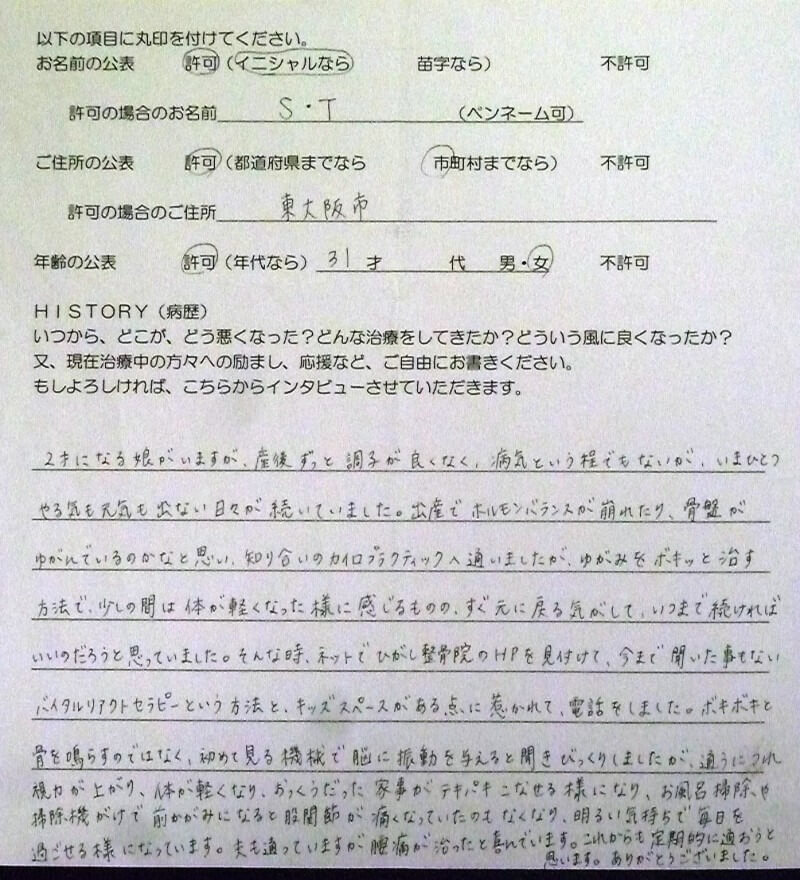 以下の項目に丸印を付けてください。
お名前の公表 許可（イニシャルなら 苗字なら） 不許可
許可の場合のお名前 S・T （ペンネーム可）
ご住所の公表 許可（都道府県までなら 市町村までなら） 不許可
許可の場合のご住所 東大阪市
年齢の公表 許可（年代なら） 31才 代 男・女 不許可
ＨＩＳＴＯＲＹ（病歴）
いつから、どこが、どう悪くなった？どんな治療をしてきたか？どういう風に良くなったか？
又、現在治療中の方々への励まし、応援など、ご自由にお書きください。
もしよろしければ、こちらからインタビューさせていただきます。
2才になる娘がいますが、産後ずっと調子が良くなく、病気という程でもないが、いまひとつ
やる気も元気も出ない日々が続いていました。出産でホルモンバランスが崩れたり、骨盤が
ゆがんでいるのかなと思い、知り合いのカイロプラクティックへ通いましたが、ゆがみをボキッと治す
方法で、少しの間は体が軽くなった様に感じるものの、すぐ元に戻る気がして、いつまで続ければ
いいのだろうと思っていました。そんな時、ネットでひがし整骨院のHPを見付けて、今まで聞いた事もない
バイタルリアクトセラピーという方法と、キッズスペースがある点に惹かれて、電話をしました。ボキボキと
骨を鳴らすのではなく、初めて見る機械で脳に振動を与えると聞きびっくりしましたが、通うにつれ
視力が上がり、体が軽くなり、おっくうだった家事がテキパキこなせる様になり、お風呂掃除や
掃除機がけで前かがみになると股関節が痛くなっていたのもなくなり、明るい気持ちで毎日を
過ごせる様になっています。夫も通っていますが腰痛が治ったと喜んでいます。これからも定期的に通おうと
思います。ありがとうございました。